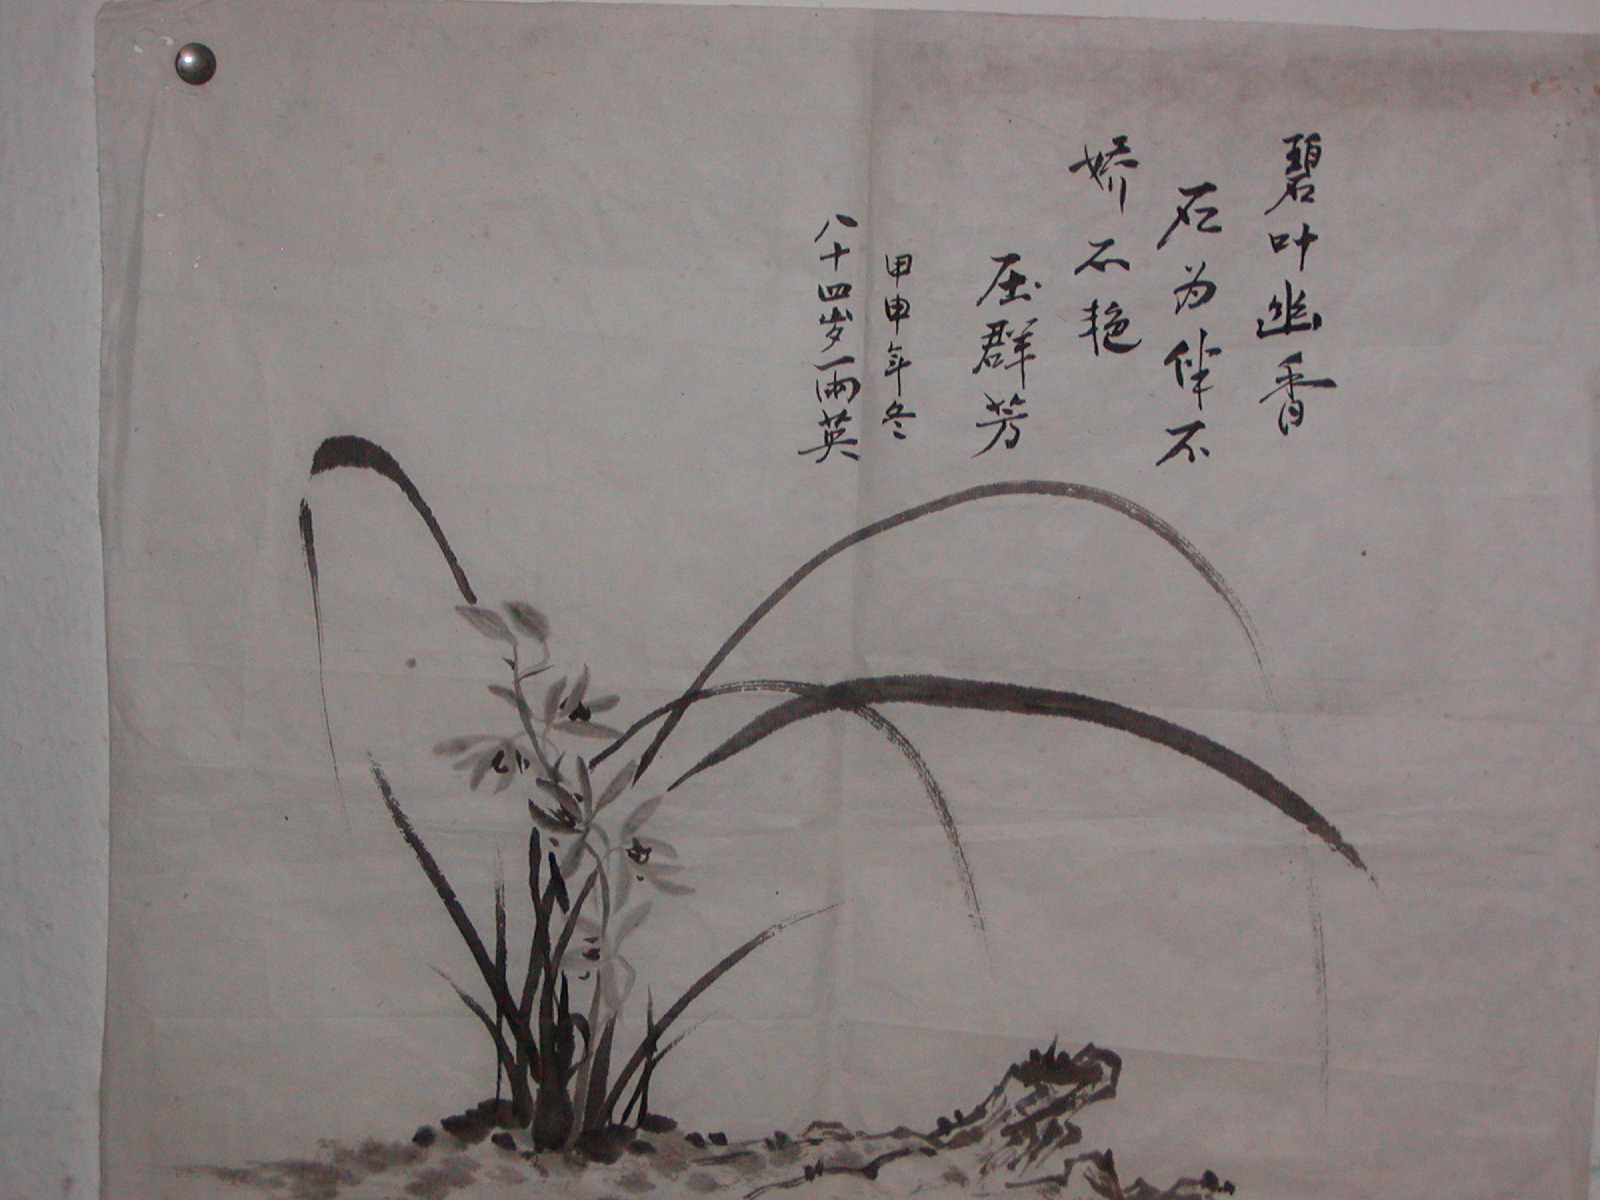 碧叶幽香
石为伴不
娇不艳
压群芳
甲申年冬
八十四岁一雨英